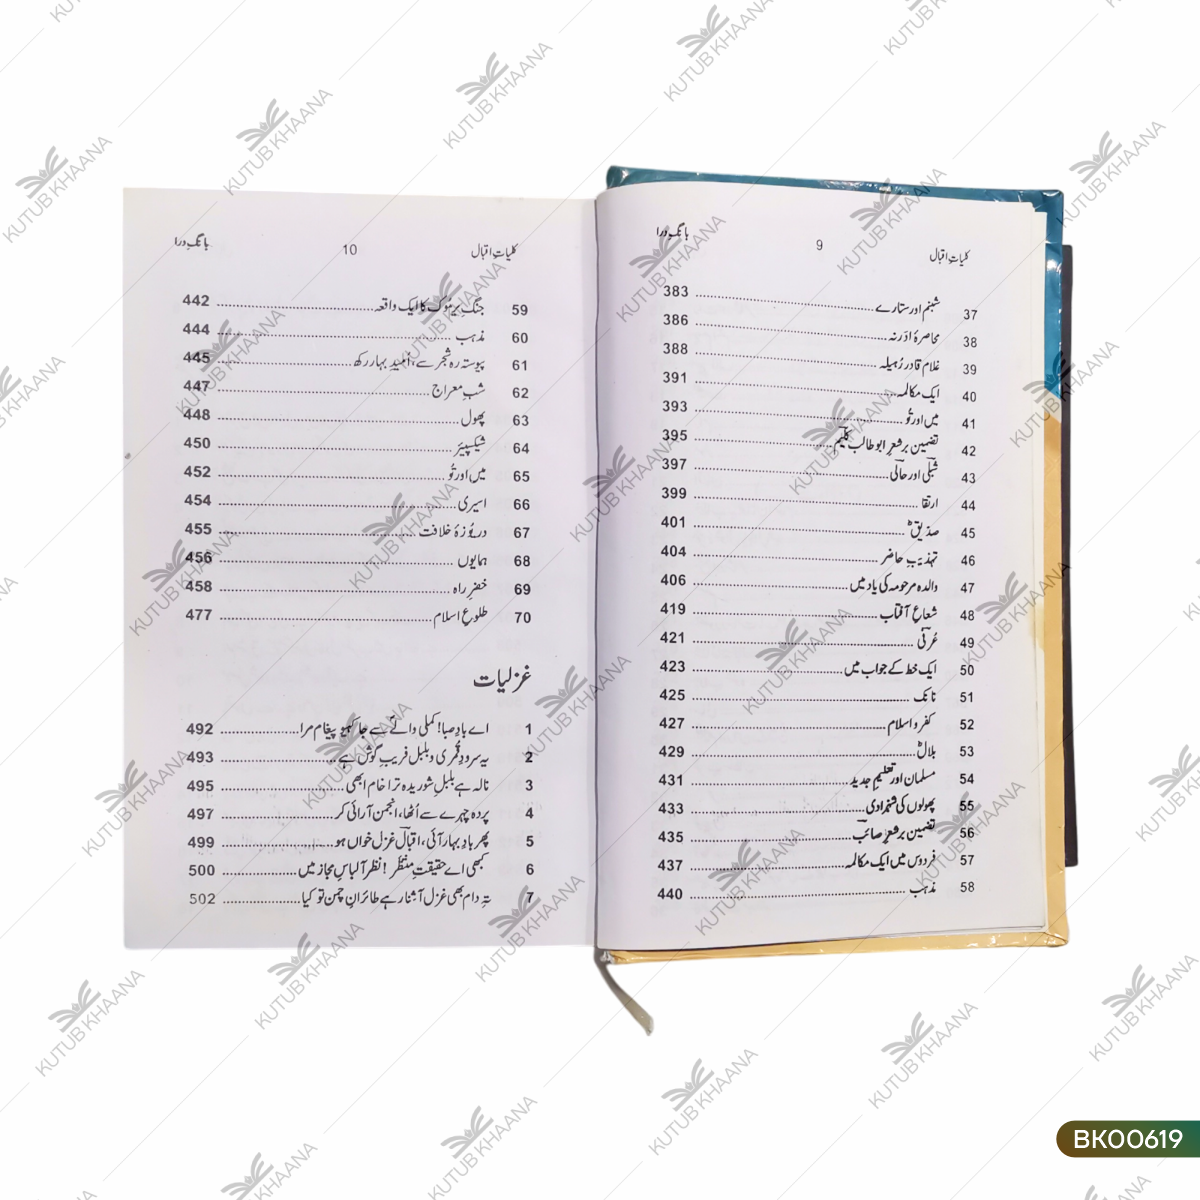 کلیاتِ اقبال 9 بانگِ درا
37 شبنم اور ستارے 383
38 محاصرۂ ادرنہ 386
39 غلام قادر رُہیلہ 388
40 ایک مکالمہ 391
41 میں اور تُو 393
42 تضمین بر شعرِ ابوطالب کلیمؔ 395
43 شبلیؔ اور حالیؔ 397
44 ارتقا 399
45 صدیقؓ 401
46 تہذیبِ حاضر 404
47 والدہ مرحومہ کی یاد میں 406
48 شعاعِ آفتاب 419
49 عُرفیؔ 421
50 ایک خط کے جواب میں 423
51 نانک 425
52 کفر و اسلام 427
53 بلالؓ 429
54 مسلمان اور تعلیمِ جدید 431
55 پھولوں کی شہزادی 433
56 تضمین بر شعرِ صائبؔ 435
57 فردوس میں ایک مکالمہ 437
58 مذہب 440
کلیاتِ اقبال 10 بانگِ درا
59 جنگِ یرموک کا ایک واقعہ 442
60 مذہب 444
61 پیوستہ رہ شجر سے، اُمیدِ بہار رکھ 445
62 شبِ معراج 447
63 پھول 448
64 شیکسپیئر 450
65 میں اور تُو 452
66 اسیری 454
67 دریُوزۂ خلافت 455
68 ہمایوں 456
69 خضرِ راہ 458
70 طلوعِ اسلام 477
غزلیات
1 اے بادِ صبا! کملی والےؐ سے جا کہیو پیغام مرا 492
2 یہ سرودِ قُمری و بلبل فریبِ گوش ہے 493
3 نالہ ہے بلبلِ شوریدہ ترا خام ابھی 495
4 پردہ چہرے سے اُٹھا، انجمن آرائی کر 497
5 پھر بادِ بہار آئی، اقبالؔ غزل خواں ہو 499
6 کبھی اے حقیقتِ منتظَر! نظر آ لباسِ مجاز میں 500
7 تہِ دام بھی غزل آشنا رہے طائرانِ چمن تو کیا 502
BK00619
KUTUB KHAANA